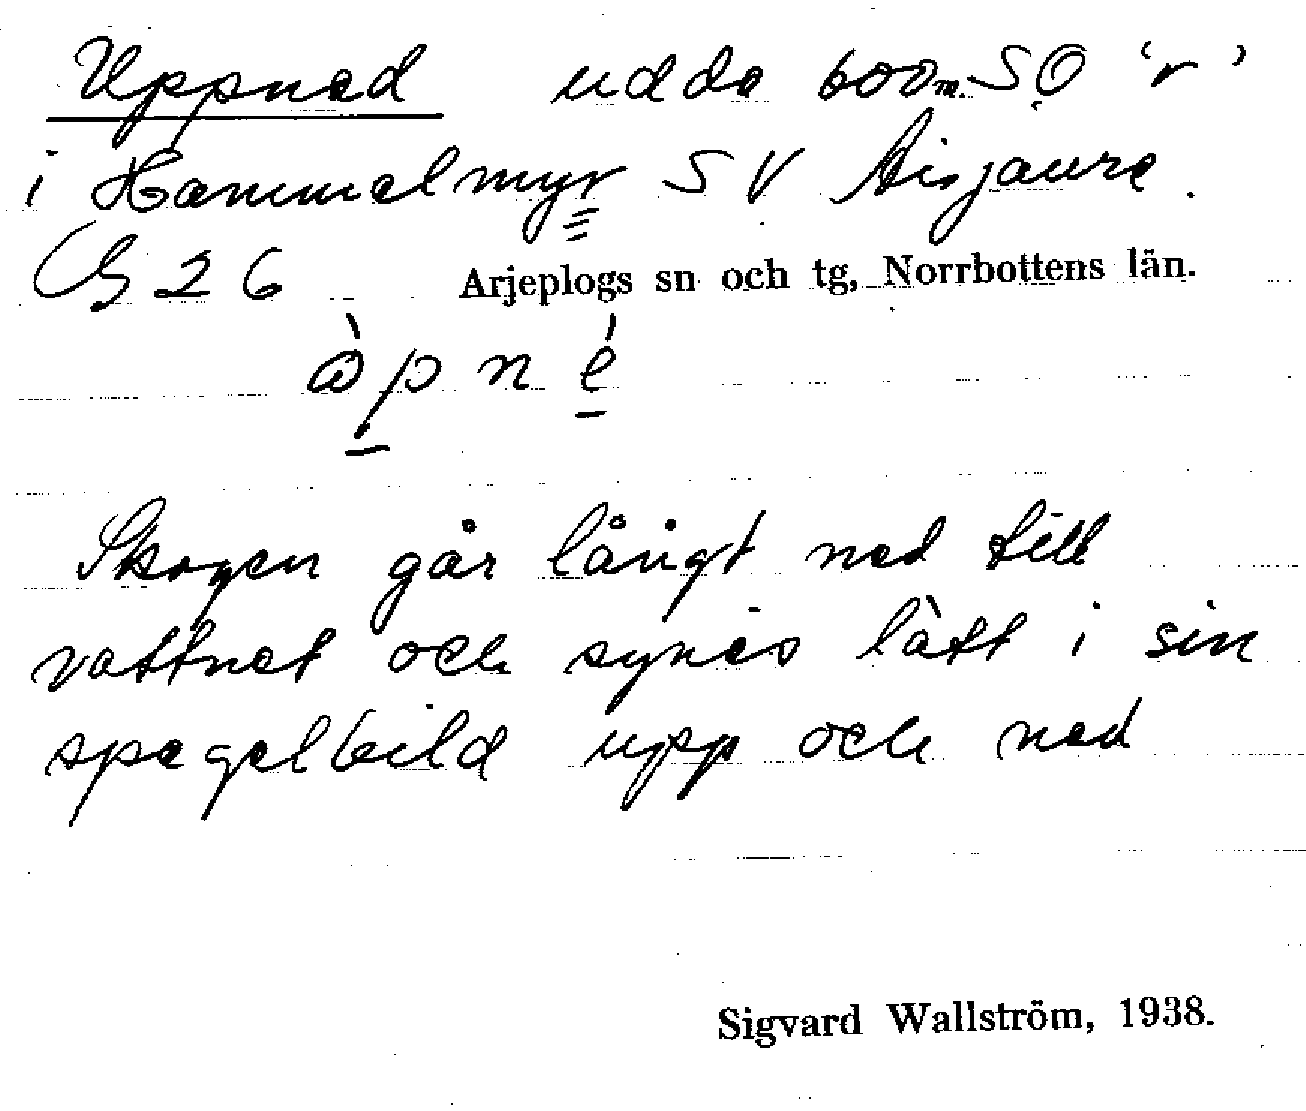 Uppned udde 600 m. SO 'r'
i Hammelmyr SV Aisjaure.
G 26 Arjeplogs sn och tg, Norrbottens län.
àpné
Skogen går långt ned till
vattnet och synes lätt i sin
spegelbild upp och ned
Sigvard Wallström, 1938.